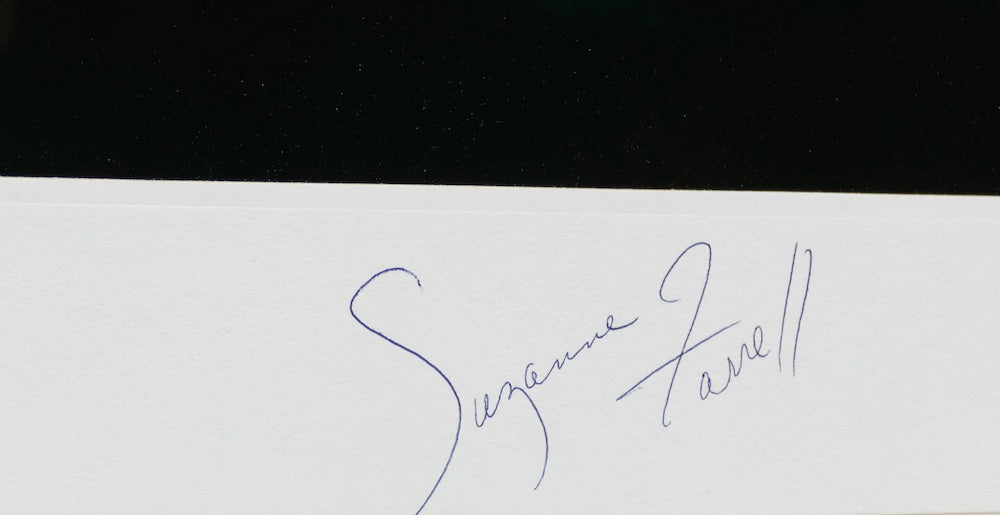 Suzanne Farrell